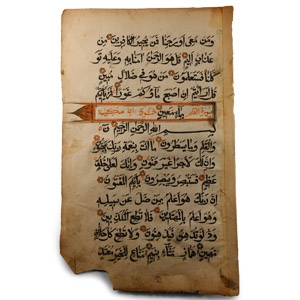 ومن معى أو رحمنا فمن يجير الكافرين من
عذاب أليم قل هو الرحمن آمنا به وعليه تو
كلنا فستعلمون من هو في ضلال مبين
قل أرأيتم إن أصبح ماؤكم غورا فمن يأتيكم
سورة القلم بماء معين مكية
بسم الله الرحمن الرحيم ن
والقلم وما يسطرون ما أنت بنعمة ربك
بمجنون وإن لك لأجرا غير ممنون وإنك لعلى خلق
عظيم فستبصر ويبصرون بأيكم المفتون
إن ربك هو أعلم بمن ضل عن سبيله
وهو أعلم بالمهتدين فلا تطع المكذبين
ودوا لو تدهن فيدهنون ولا تطع كل حلاف
مهين هماز مشاء بنميم مناع للخير معتد